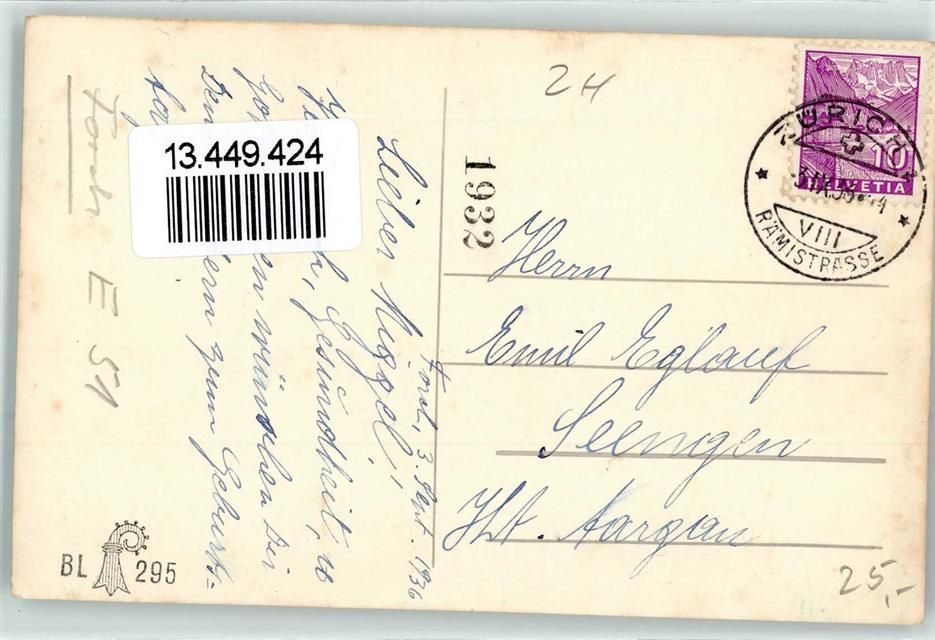 Forch, 3. Sept. 1936
Lieber Migger!
Gesundheit, u
wünschen Dir
zum Geburts=
Forch E 51
13.449.424
1932
24
ZÜRICH
10
HELVETIA
VIII
RÄMISTRASSE
Herrn
Emil Eglauf
Seengen
Kt. Aargau
25,-
BL 295